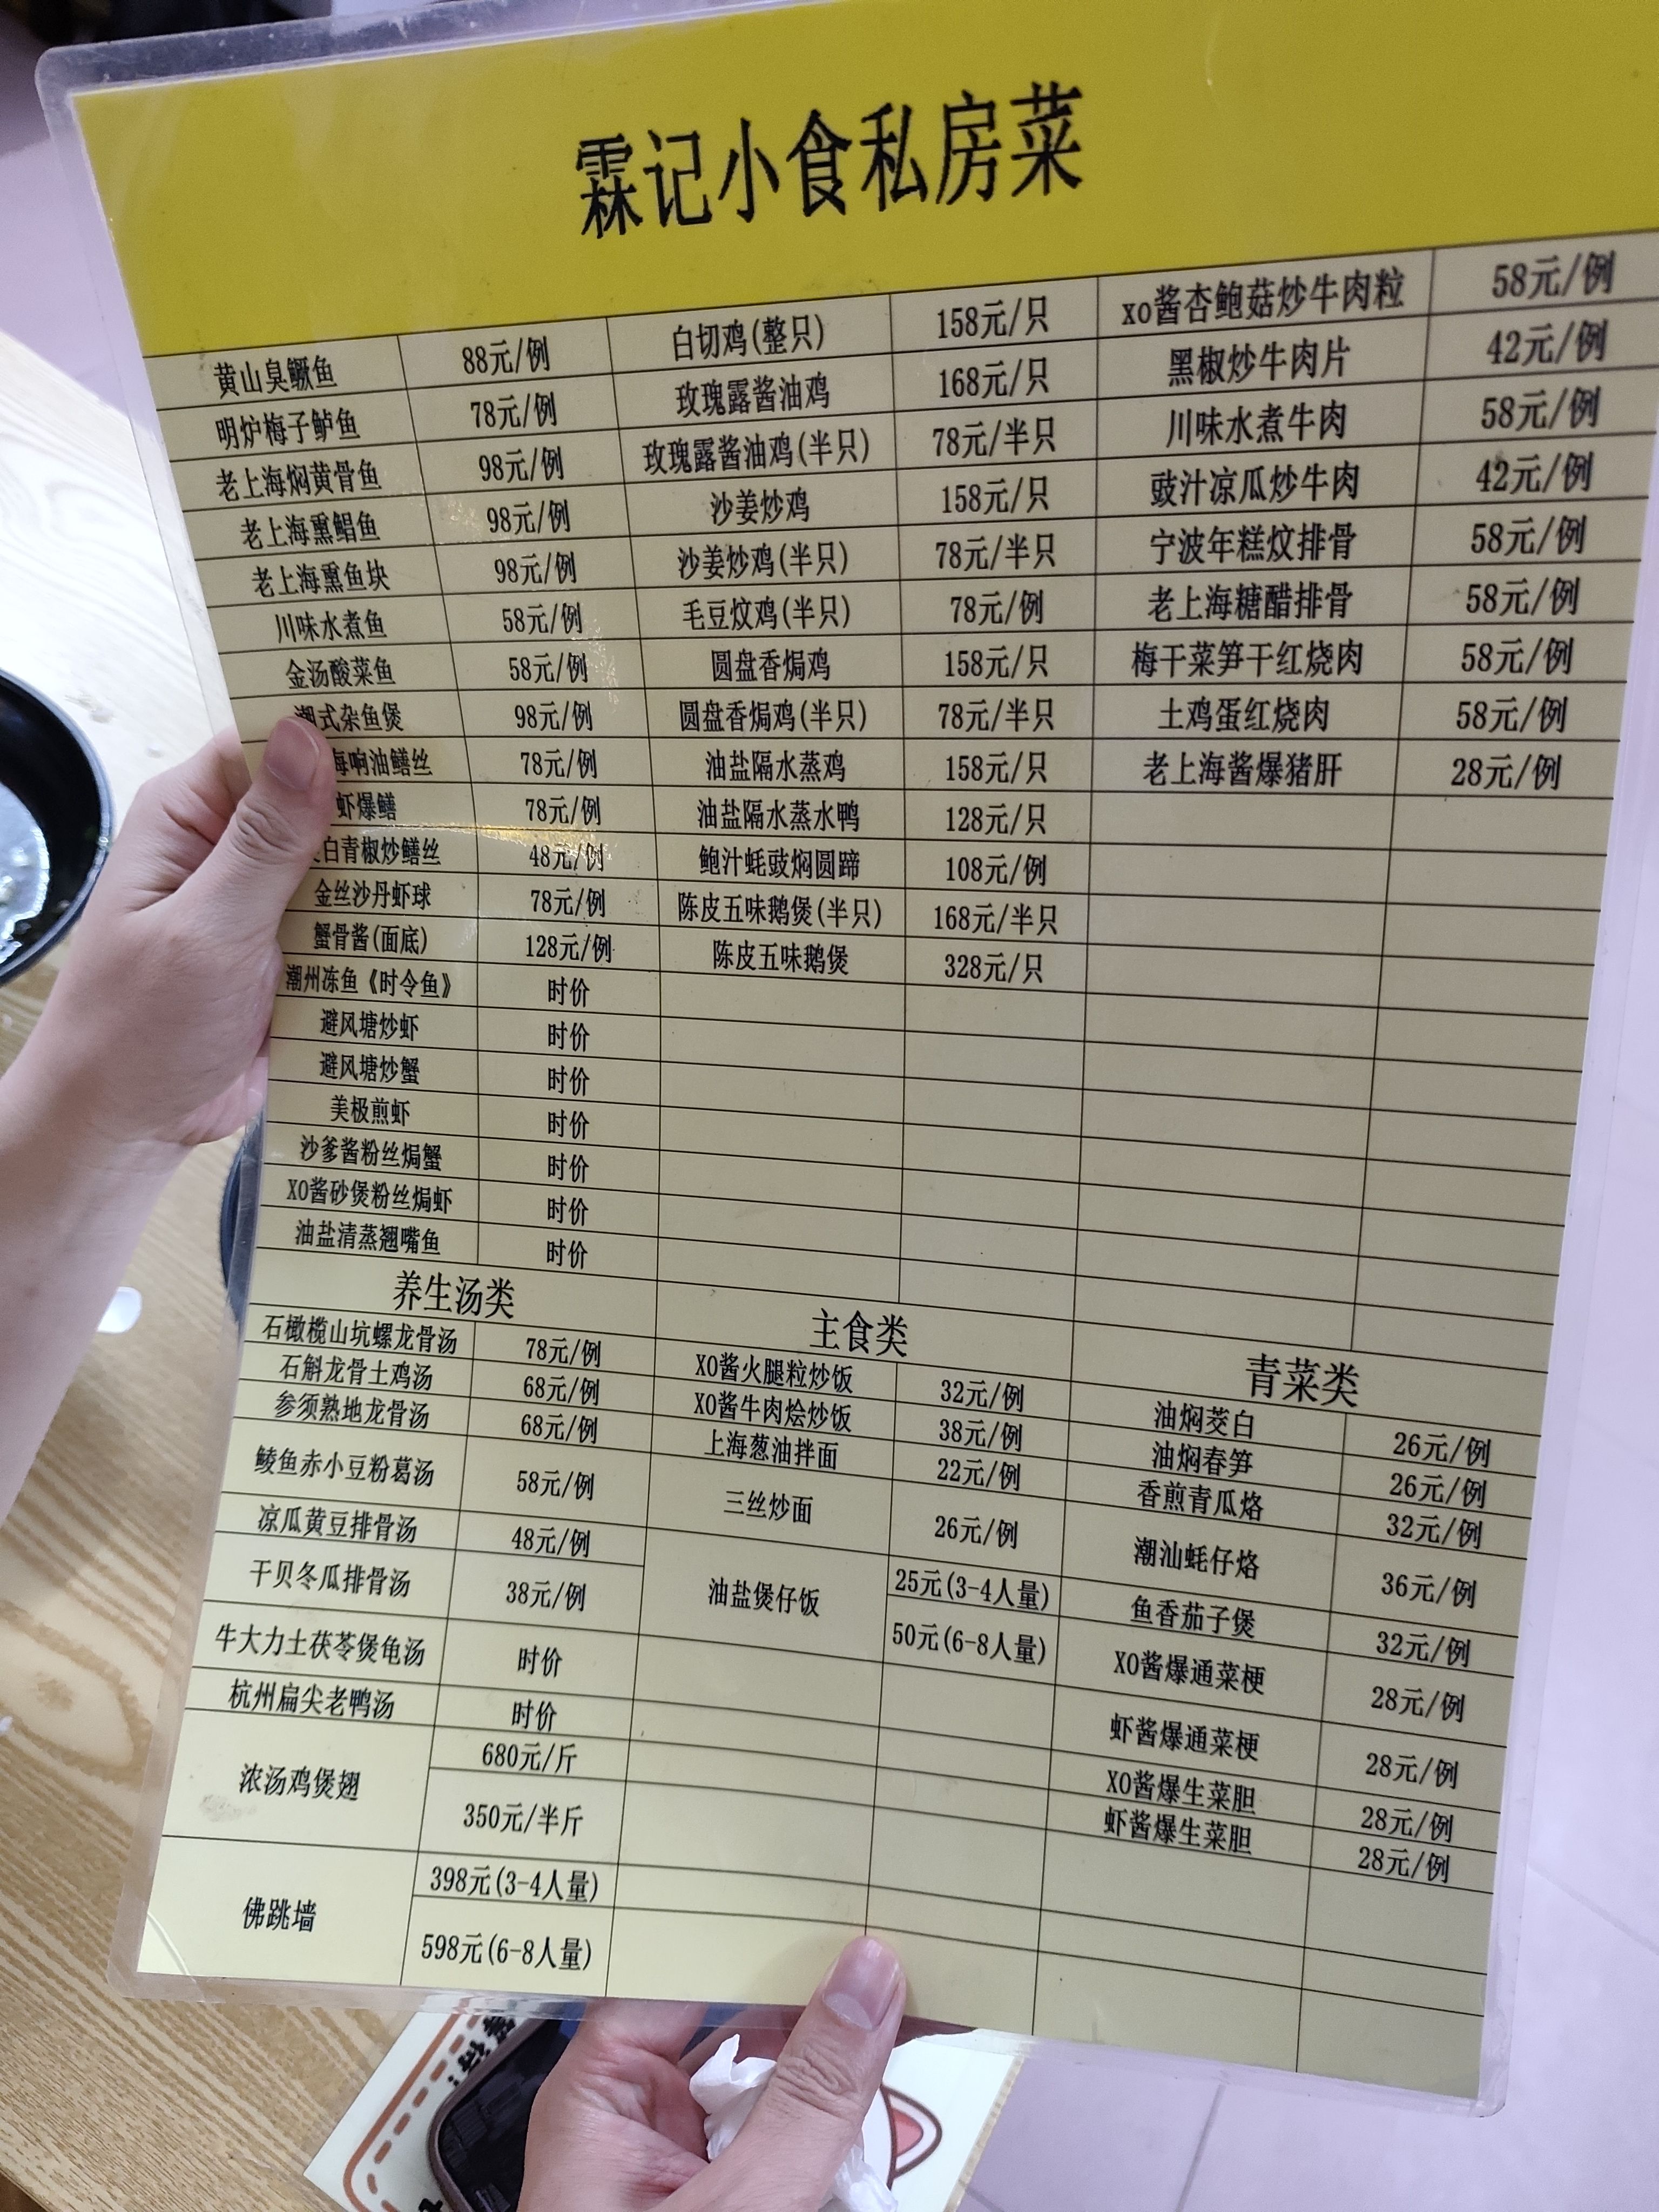 霖记小食私房菜
黄山臭鳜鱼 88元/例 白切鸡(整只) 158元/只 xo酱杏鲍菇炒牛肉粒 58元/例
明炉梅子鲈鱼 78元/例 玫瑰露酱油鸡 168元/只 黑椒炒牛肉片 42元/例
老上海焖黄骨鱼 98元/例 玫瑰露酱油鸡(半只) 78元/半只 川味水煮牛肉 58元/例
老上海熏鲳鱼 98元/例 沙姜炒鸡 158元/只 豉汁凉瓜炒牛肉 42元/例
老上海熏鱼块 98元/例 沙姜炒鸡(半只) 78元/半只 宁波年糕炆排骨 58元/例
川味水煮鱼 58元/例 毛豆炆鸡(半只) 78元/例 老上海糖醋排骨 58元/例
金汤酸菜鱼 58元/例 圆盘香焗鸡 158元/只 梅干菜笋干红烧肉 58元/例
潮式杂鱼煲 98元/例 圆盘香焗鸡(半只) 78元/半只 土鸡蛋红烧肉 58元/例
海响油鳝丝 78元/例 油盐隔水蒸鸡 158元/只 老上海酱爆猪肝 28元/例
虾爆鳝 78元/例 油盐隔水蒸水鸭 128元/只
白青椒炒鳝丝 48元/例 鲍汁蚝豉焖圆蹄 108元/例
金丝沙丹虾球 78元/例 陈皮五味鹅煲(半只) 168元/半只
蟹骨酱(面底) 128元/例 陈皮五味鹅煲 328元/只
潮州冻鱼《时令鱼》 时价
避风塘炒虾 时价
避风塘炒蟹 时价
美极煎虾 时价
沙爹酱粉丝焗蟹 时价
XO酱砂煲粉丝焗虾 时价
油盐清蒸翘嘴鱼 时价
养生汤类
石橄榄山坑螺龙骨汤 78元/例
石斛龙骨土鸡汤 68元/例
参须熟地龙骨汤 68元/例
鲮鱼赤小豆粉葛汤 58元/例
凉瓜黄豆排骨汤 48元/例
干贝冬瓜排骨汤 38元/例
牛大力土茯苓煲龟汤 时价
杭州扁尖老鸭汤 时价
浓汤鸡煲翅 680元/斤
350元/半斤
佛跳墙 398元(3-4人量)
598元(6-8人量)
主食类
XO酱火腿粒炒饭 32元/例
XO酱牛肉烩炒饭 38元/例
上海葱油拌面 22元/例
三丝炒面 26元/例
油盐煲仔饭 25元(3-4人量)
50元(6-8人量)
青菜类
油焖茭白 26元/例
油焖春笋 26元/例
香煎青瓜烙 32元/例
潮汕蚝仔烙 36元/例
鱼香茄子煲 32元/例
XO酱爆通菜梗 28元/例
虾酱爆通菜梗 28元/例
XO酱爆生菜胆 28元/例
虾酱爆生菜胆 28元/例